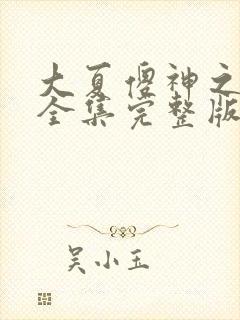 大夏傻神之
全集完整版
吴小玉